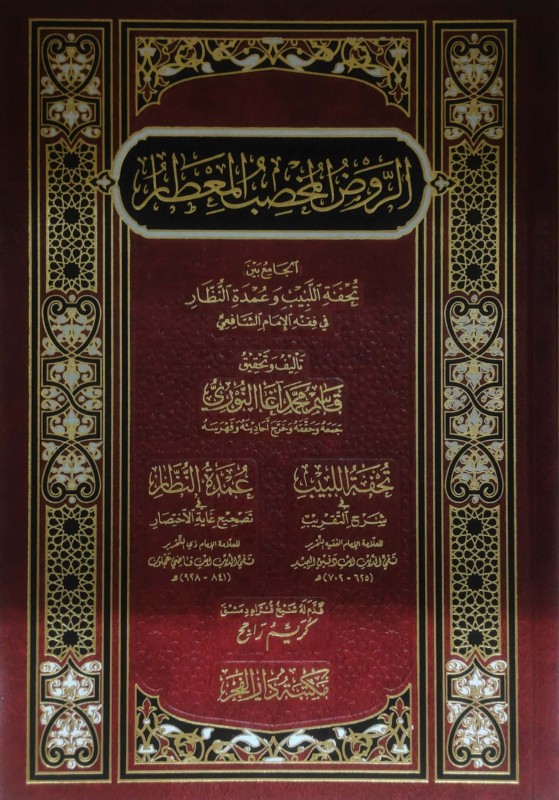 الرَّوْضُ المُخْصِبُ المِعْطَار
الجَامِعُ بَيْنَ
تُحْفَةِ اللَّبِيْبِ وَعُمْدَةِ النُّظَّارِ
فِي فِقْهِ الإِمَامِ الشَّافِعِيِّ
تَأْلِيْفُ وَتَحْقِيْقُ
قَاسِمُ مُحَمَّد آغَا النُّوْرِيُّ
جَمَعَهُ وَحَقَّقَهُ وَخَرَّجَ أَحَادِيْثَهُ وَفَهْرَسَهُ
تُحْفَةُ اللَّبِيْبِ
فِي
شَرْحِ التَّقْرِيْبِ
للعلامة الإمام الفقيه النحرير
تقي الدين ابن دقيق العيد
(٦٢٥ - ٧٠٢) هـ
عُمْدَةُ النُّظَّارِ
فِي
تَصْحِيْحِ غَايَةِ الاخْتِصَارِ
للعلامة الإمام ذي التحرير
تقي الدين ابن قاضي عجلون
(٨٤١ - ٩٢٨) هـ
قَدَّمَ لَهُ شَيْخُ قُرَّاءِ دِمَشْقَ
كُرَيِّمُ رَاجِح
مَكْتَبَةُ دَارِ الفَجْرِ